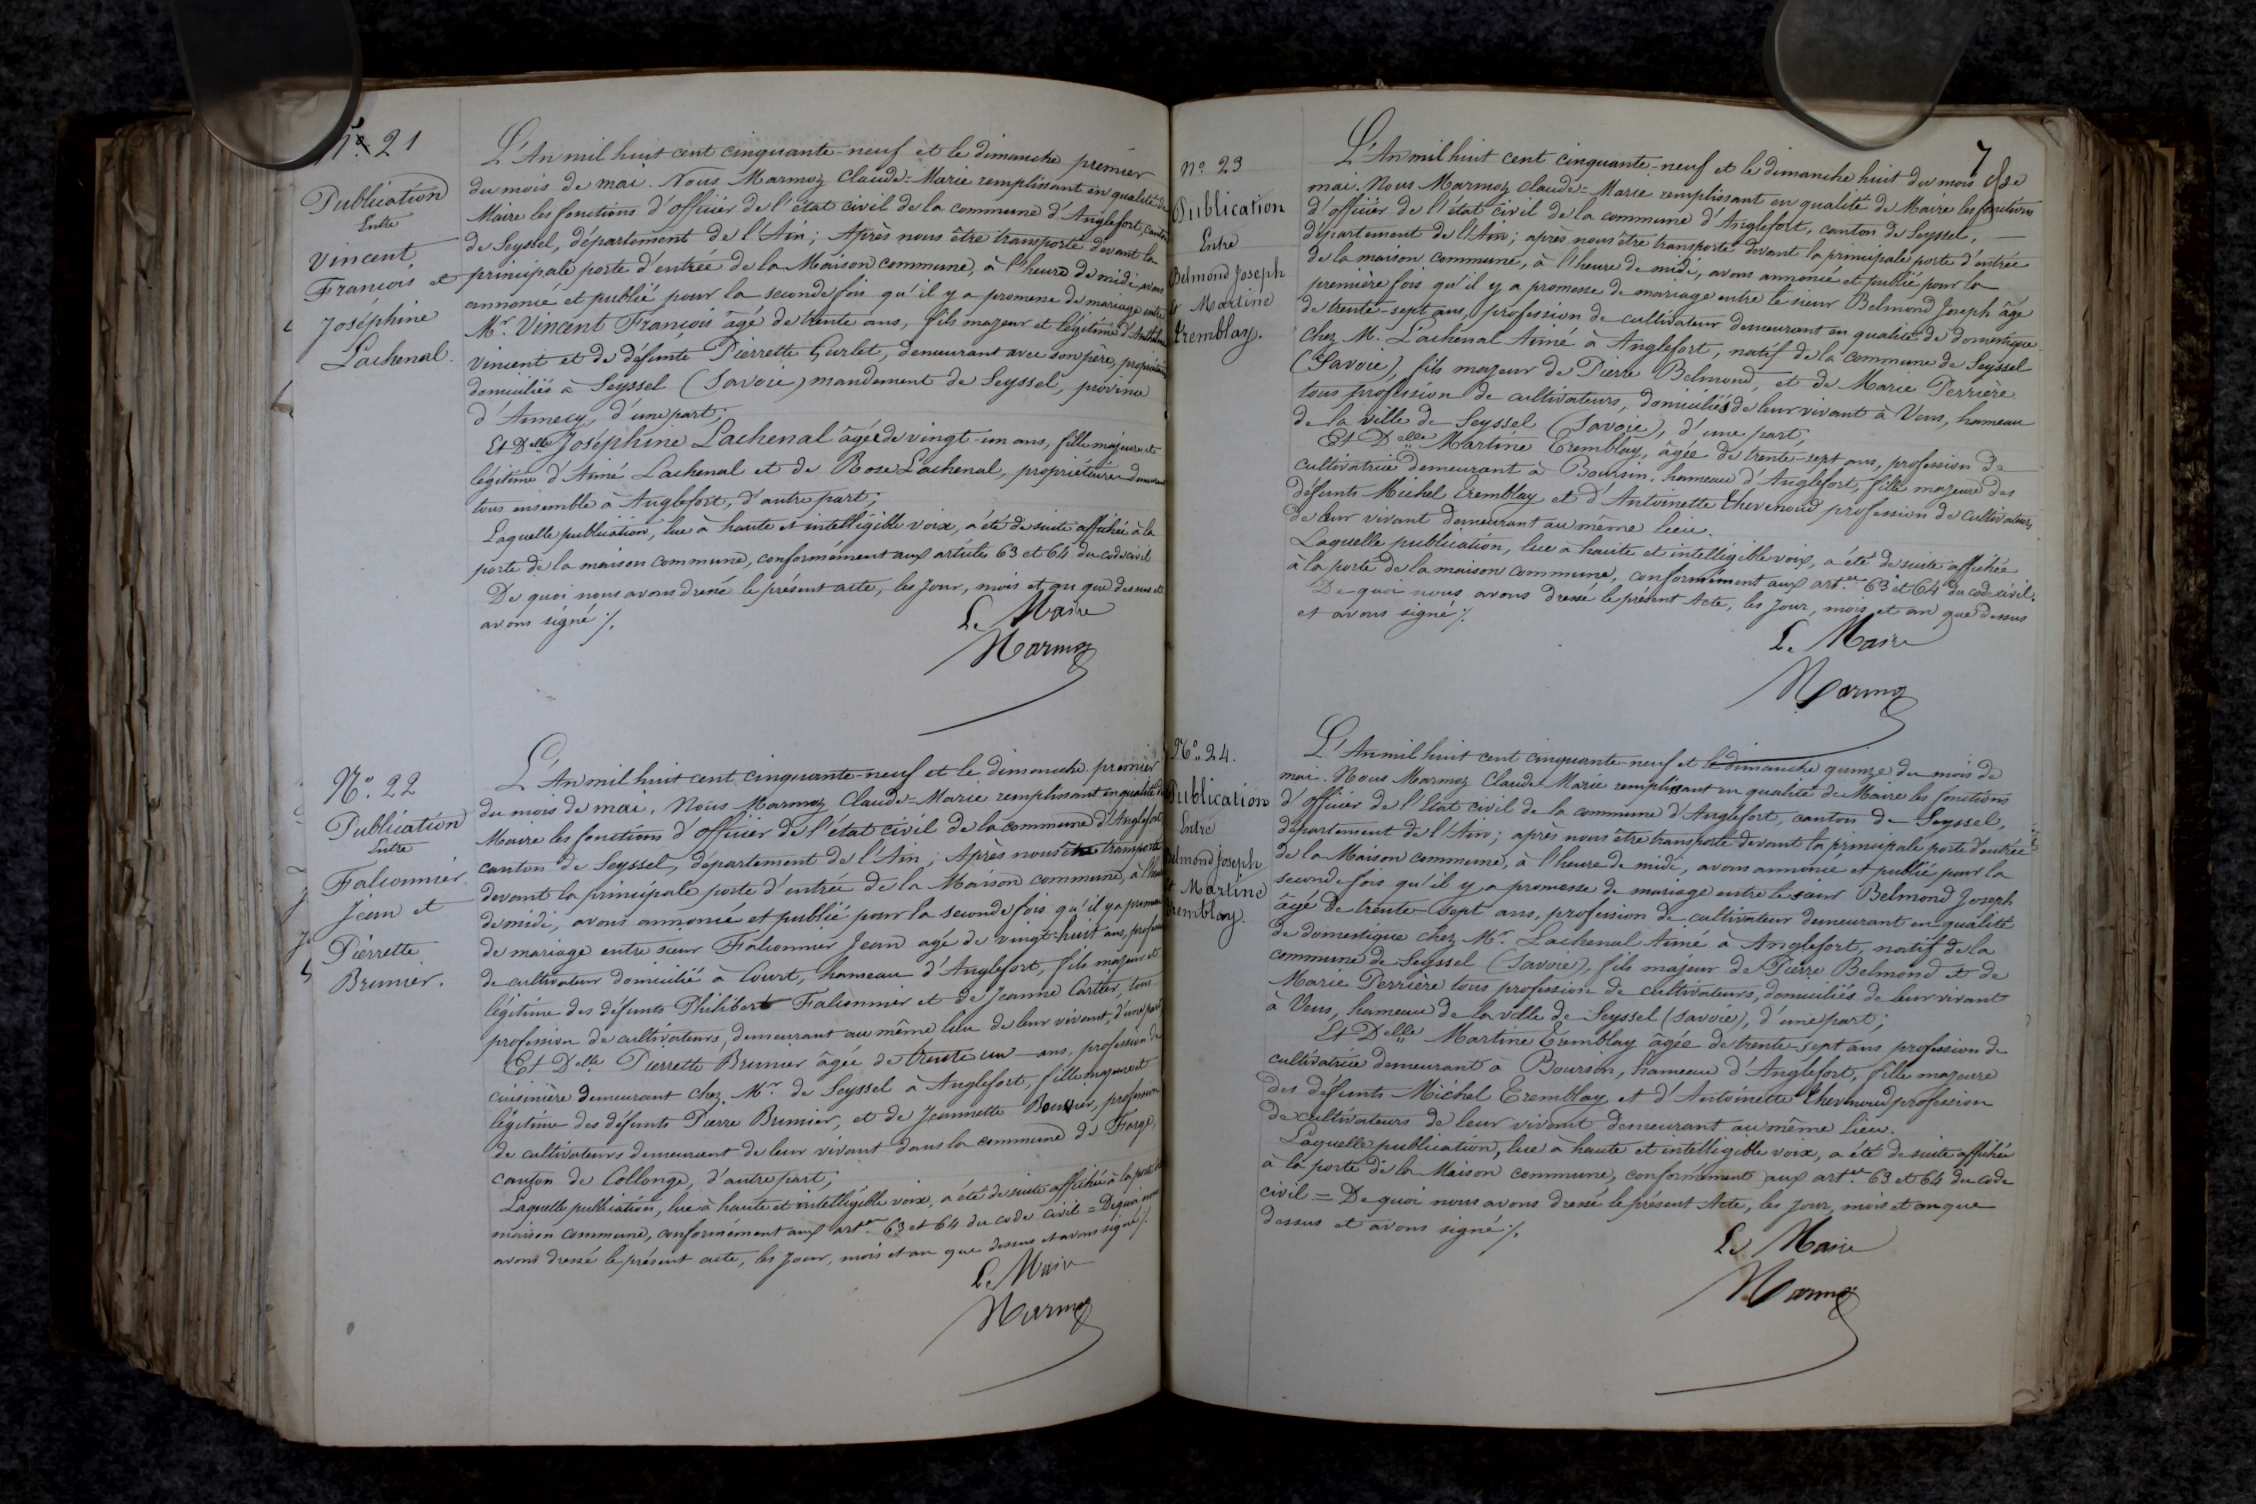 Nº 21
Publication
Entre
Vincent,
François et
Joséphine
Lachenal.
L'An mil huit cent cinquante-neuf et le dimanche premier
du mois de mai. Nous Marmoz Claude=Marie remplissant en qualité de
Maire les fonctions d'officier de l'état civil de la commune d'Anglefort, canton
de Seyssel, département de l'Ain; Après nous être transporté devant la
principale porte d'entrée de la Maison commune, à l'heure de midi, avons
annoncé et publié pour la seconde fois qu'il y a promesse de mariage entre
Mr. Vincent François âgé de trente ans, fils majeur et légitime d'
Vincent et de défunte Pierrette Gurlet, demeurant avec son père, propriétaire
domiciliés à Seyssel (Savoie) mandement de Seyssel, province
d'Annecy, d'une part;
Et Delle Joséphine Lachenal âgée de vingt-un ans, fille majeure et
légitime d'Aimé Lachenal et de Rose Lachenal, propriétaires demeurant
tous ensemble à Anglefort, d'autre part;
Laquelle publication, lue à haute et intelligible voix, a été de suite affichée à la
porte de la maison commune, conformément aux articles 63 et 64 du code civil
De quoi nous avons dressé le présent acte, les jour, mois et an que dessus et
avons signé /.
Le Maire
Marmoz
Nº. 22
Publication
Entre
Falconnier
Jean et
Pierrette
Brunier.
L'An mil huit cent cinquante-neuf et le dimanche premier
du mois de mai. Nous Marmoz Claude=Marie remplissant en qualité de
Maire les fonctions d'officier de l'état civil de la commune d'Anglefort
canton de Seyssel, département de l'Ain; Après nous être transporté
devant la principale porte d'entrée de la Maison commune, à l'heure
de midi, avons annoncé et publié pour la seconde fois qu'il y a promesse
de mariage entre sieur Falconnier Jean agé de vingt-huit ans, profession
de cultivateur domicilié à Court, hameau d'Anglefort, fils majeur et
légitime des défunts Philibert Falconnier et de Jeanne Cartier, tous
profession de cultivateurs, demeurant au même lieu de leur vivant, d'une part
Et Delle Pierrette Brunier âgée de trente un ans, profession de
cuisinière demeurant chez Mr. de Seyssel à Anglefort, fille majeure et
légitime des défunts Pierre Brunier, et de Jeannette Bouvier, profession
de cultivateurs demeurant de leur vivant dans la commune de Farge,
canton de Collonge, d'autre part;
Laquelle publication, lue à haute et intelligible voix, a été de suite affichée à la porte de la
maison commune, conformément aux art. 63 et 64 du code civil = De quoi nous
avons dressé le présent acte, les jour, mois et an que dessus et avons signé /.
Le Maire
Marmoz
7
Nº 23
Publication
Entre
Belmond Joseph
et Martine
Tremblay.
L'An mil huit cent cinquante-neuf et le dimanche huit du mois de
mai. Nous Marmoz Claude=Marie remplissant en qualité de Maire les fonctions
d'officier de l'état civil de la commune d'Anglefort, canton de Seyssel,
département de l'Ain; après nous être transporté devant la principale porte d'entrée
de la maison commune, à l'heure de midi, avons annoncé et publié pour la
première fois qu'il y a promesse de mariage entre le sieur Belmond Joseph âgé
de trente-sept ans, profession de cultivateur demeurant en qualité de domestique
chez M. Lachenal Aimé à Anglefort, natif de la commune de Seyssel
(Savoie), fils majeur de Pierre Belmond, et de Marie Perrière
tous profession de cultivateurs, domiciliés de leur vivant à Vens, hameau
de la ville de Seyssel (Savoie), d'une part,
Et Delle Martine Tremblay, âgée de trente-sept ans, profession de
cultivatrice demeurant à Boursin, hameau d'Anglefort, fille majeure des
défunts Michel Tremblay et d'Antoinette Thevenoud profession de cultivateurs
de leur vivant demeurant au même lieu.
Laquelle publication, lue à haute et intelligible voix, a été de suite affichée
à la porte de la maison commune, conformément aux art. 63 et 64 du code civil.
De quoi nous avons dressé le présent Acte, les jour, mois et an que dessus
et avons signé /.
Le Maire
Marmoz
Nº. 24.
Publication
Entre
Belmond Joseph
et Martine
Tremblay.
L'An mil huit cent cinquante-neuf et le dimanche quinze du mois de
mai. Nous Marmoz Claude Marie remplissant en qualité de Maire les fonctions
d'officier de l'Etat civil de la commune d'Anglefort, canton de Seyssel,
département de l'Ain; après nous être transporté devant la principale porte d'entrée
de la Maison commune, à l'heure de midi, avons annoncé et publié pour la
seconde fois qu'il y a promesse de mariage entre le sieur Belmond Joseph
âgé de trente-sept ans, profession de cultivateur demeurant en qualité
de domestique chez Mr. Lachenal Aimé à Anglefort, natif de la
commune de Seyssel (Savoie), fils majeur de Pierre Belmond et de
Marie Perrière tous profession de cultivateurs, domiciliés de leur vivant
à Vens, hameau de la ville de Seyssel (Savoie), d'une part;
Et Delle Martine Tremblay agée de trente-sept ans profession de
cultivatrice demeurant à Boursin, hameau d'Anglefort, fille majeure
des défunts Michel Tremblay et d'Antoinette Thevenoud profession
de cultivateurs de leur vivant demeurant au même lieu.
Laquelle publication, lue à haute et intelligible voix, a été de suite affichée
à la porte de la Maison commune, conformément aux art. 63 et 64 du code
civil = De quoi nous avons dressé le présent Acte, les jour, mois et an que
dessus et avons signé /.
Le Maire
Marmoz